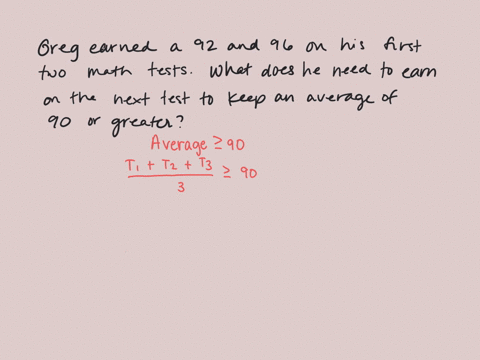 Greg earned a 92 and 96 on his first
two math tests. What does he need to earn
on the next test to keep an average of
90 or greater?
Average ≥ 90
T₁ + T₂ + T₃
3
≥ 90